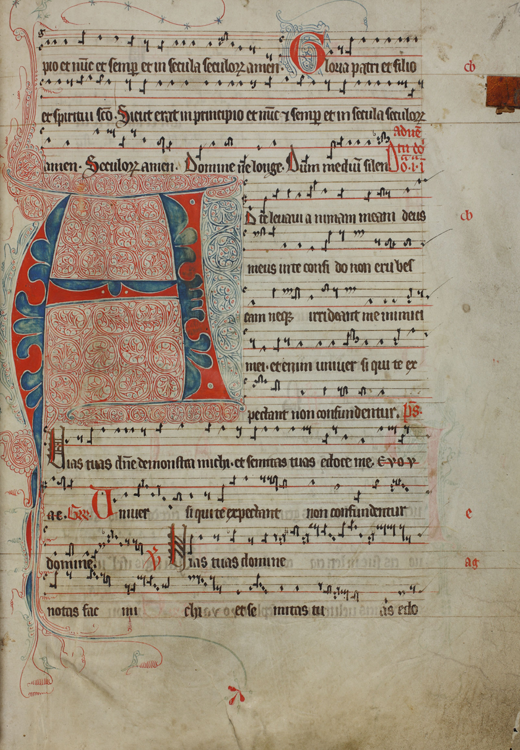 pio et nūc et semꝑ et in secula seculoꝝ amen. Gloria patri et filio
et spiritui sc̄o. Sicut erat in principio et nūc ⁊ semꝑ et in secula seculoꝝ
amen. Seculoꝝ amen. Domine ne longe. Dum mediū silen
A
D te levavi a nimam meam deus
meus in te confi do non erubes
cam neqꝫ irrideant me inimici
mei et enim univer si qui te ex
pectant non confundentur. Ps.
Vias tuas dn̄e demonstra michi. et semitas tuas edoce me. E v o v
a e. Gr̄. Univer si qui te expectant non confundentur
domine. V Vias tuas domine
notas fac mi chi et se mitas tu as edo
cb
cb
e
ag